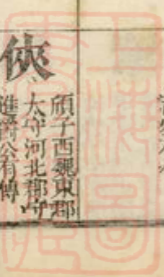 俠
頎子西魏東郡
太守河北郡守
進爵公有傳